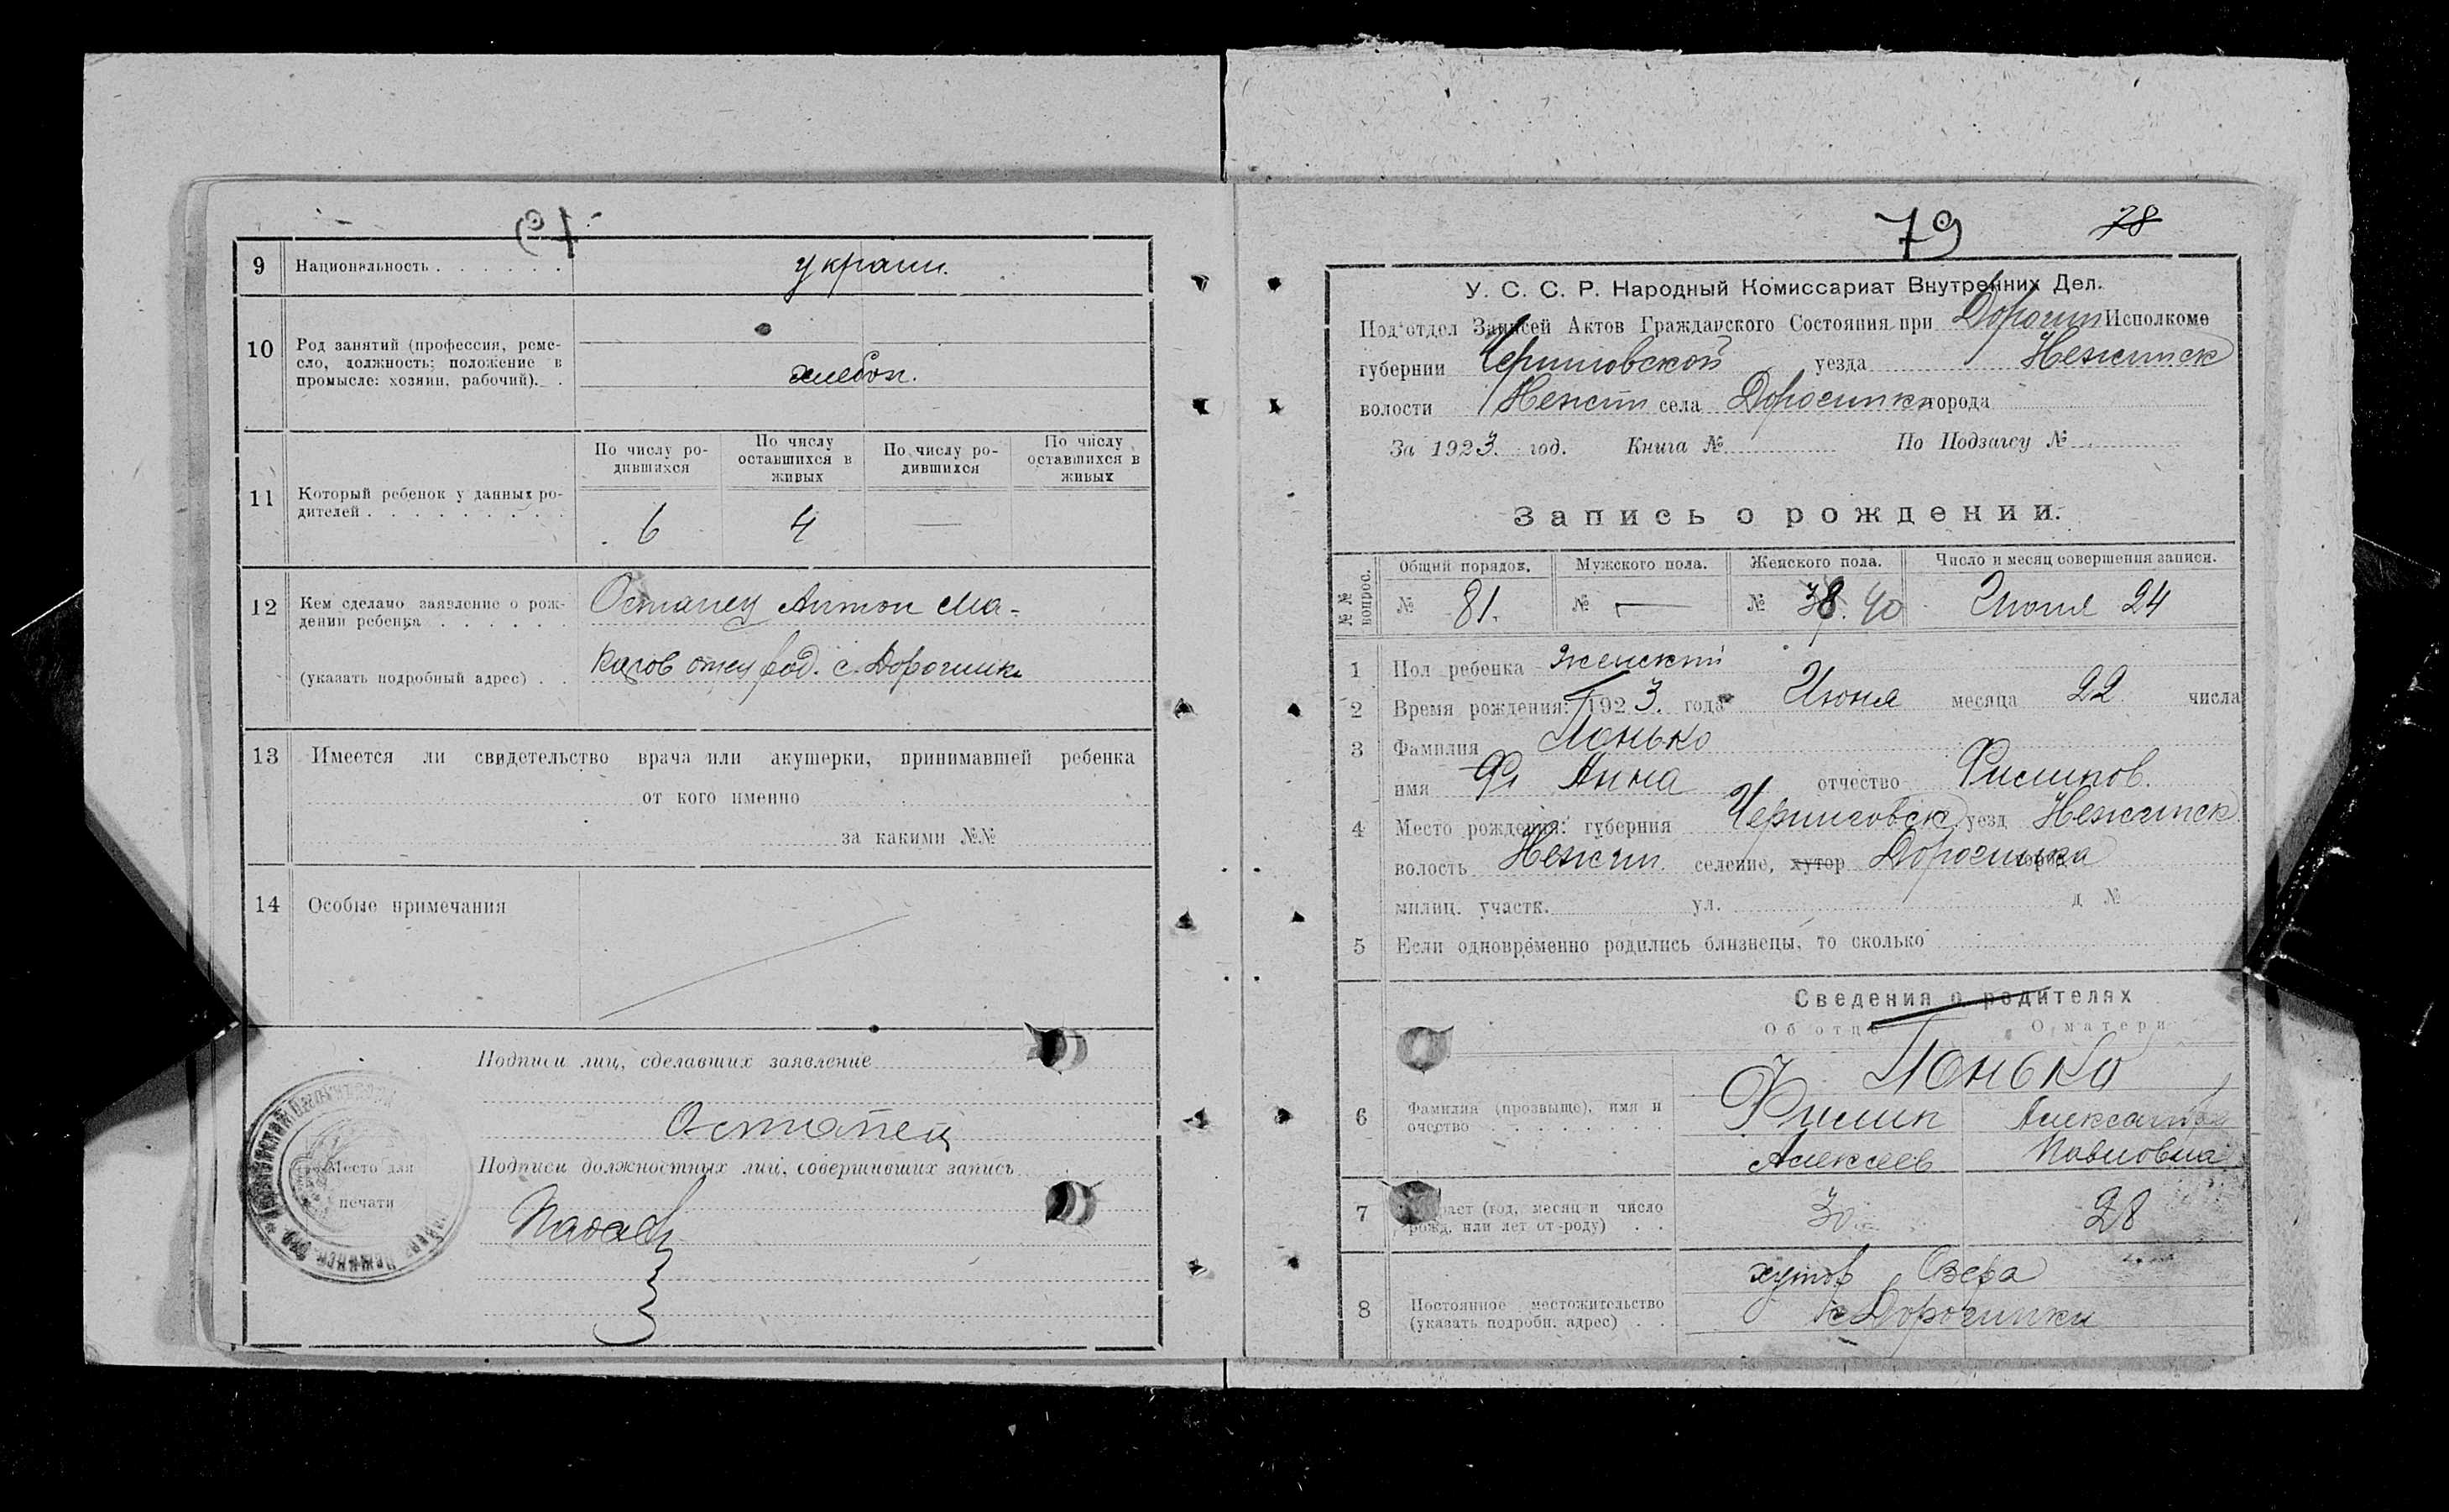 9 Национальность . . . . . . украин.
10 Род занятий (профессия, реме-
сло, должность; положение в
промысле: хозяин, рабочий). . хлебоп.
По числу ро-
дившихся
По числу
оставшихся в
живых
По числу ро-
дившихся
По числу
оставшихся в
живых
11 Который ребенок у данных ро-
дителей . . . . . . . . .
6 4 —
12 Кем сделано заявление о рож-
дении ребенка . . . . . .
Остапец Антон Ма-
(указать подробный адрес) . .
с. Дорогинк
13 Имеется ли свидетельство врача или акушерки, принимавшей ребенка
от кого именно
за какими №№
14 Особые примечания
Подписи лиц, сделавших заявление
Остапец
Подписи должностных лиц, совершивших запись
Место для
печати
79 78
У. С. С. Р. Народный Комиссариат Внутренних Дел.
Под'отдел Записей Актов Гражданского Состояния при Дорогин Исполкоме
губернии Черниговской уезда Нежинск
волости Нежин села Дорогинки города
За 1923. год. Книга № По Подзагсу №
Запись о рождении.
№ №
вопрос.
Общий порядок. Мужского пола. Женского пола. Число и месяц совершения записи.
№ 81. № — № 38. 40 Июня 24
1 Пол ребенка женский
2 Время рождения: 1923. года Июня месяца 22 числа
3 Фамилия Лонько
имя Анна отчество Филипов.
4 Место рождения: губерния Черниговск уезд Нежинск
волость Нежин. селение, хутор Дорогинка
милиц. участк. ул. д №
5 Если одновременно родились близнецы, то сколько
Сведения о родителях
Об отце О матери
Лонько
6 Фамилия (прозвище), имя и
очество . . . . . . .
Филип Александра
Алексеев Павловна
7 Возраст (год, месяц и число
рожд. или лет от-роду) . .
30 28
8 Постоянное местожительство
(указать подробн. адрес) . .
хутор Озера
с Дорогинки